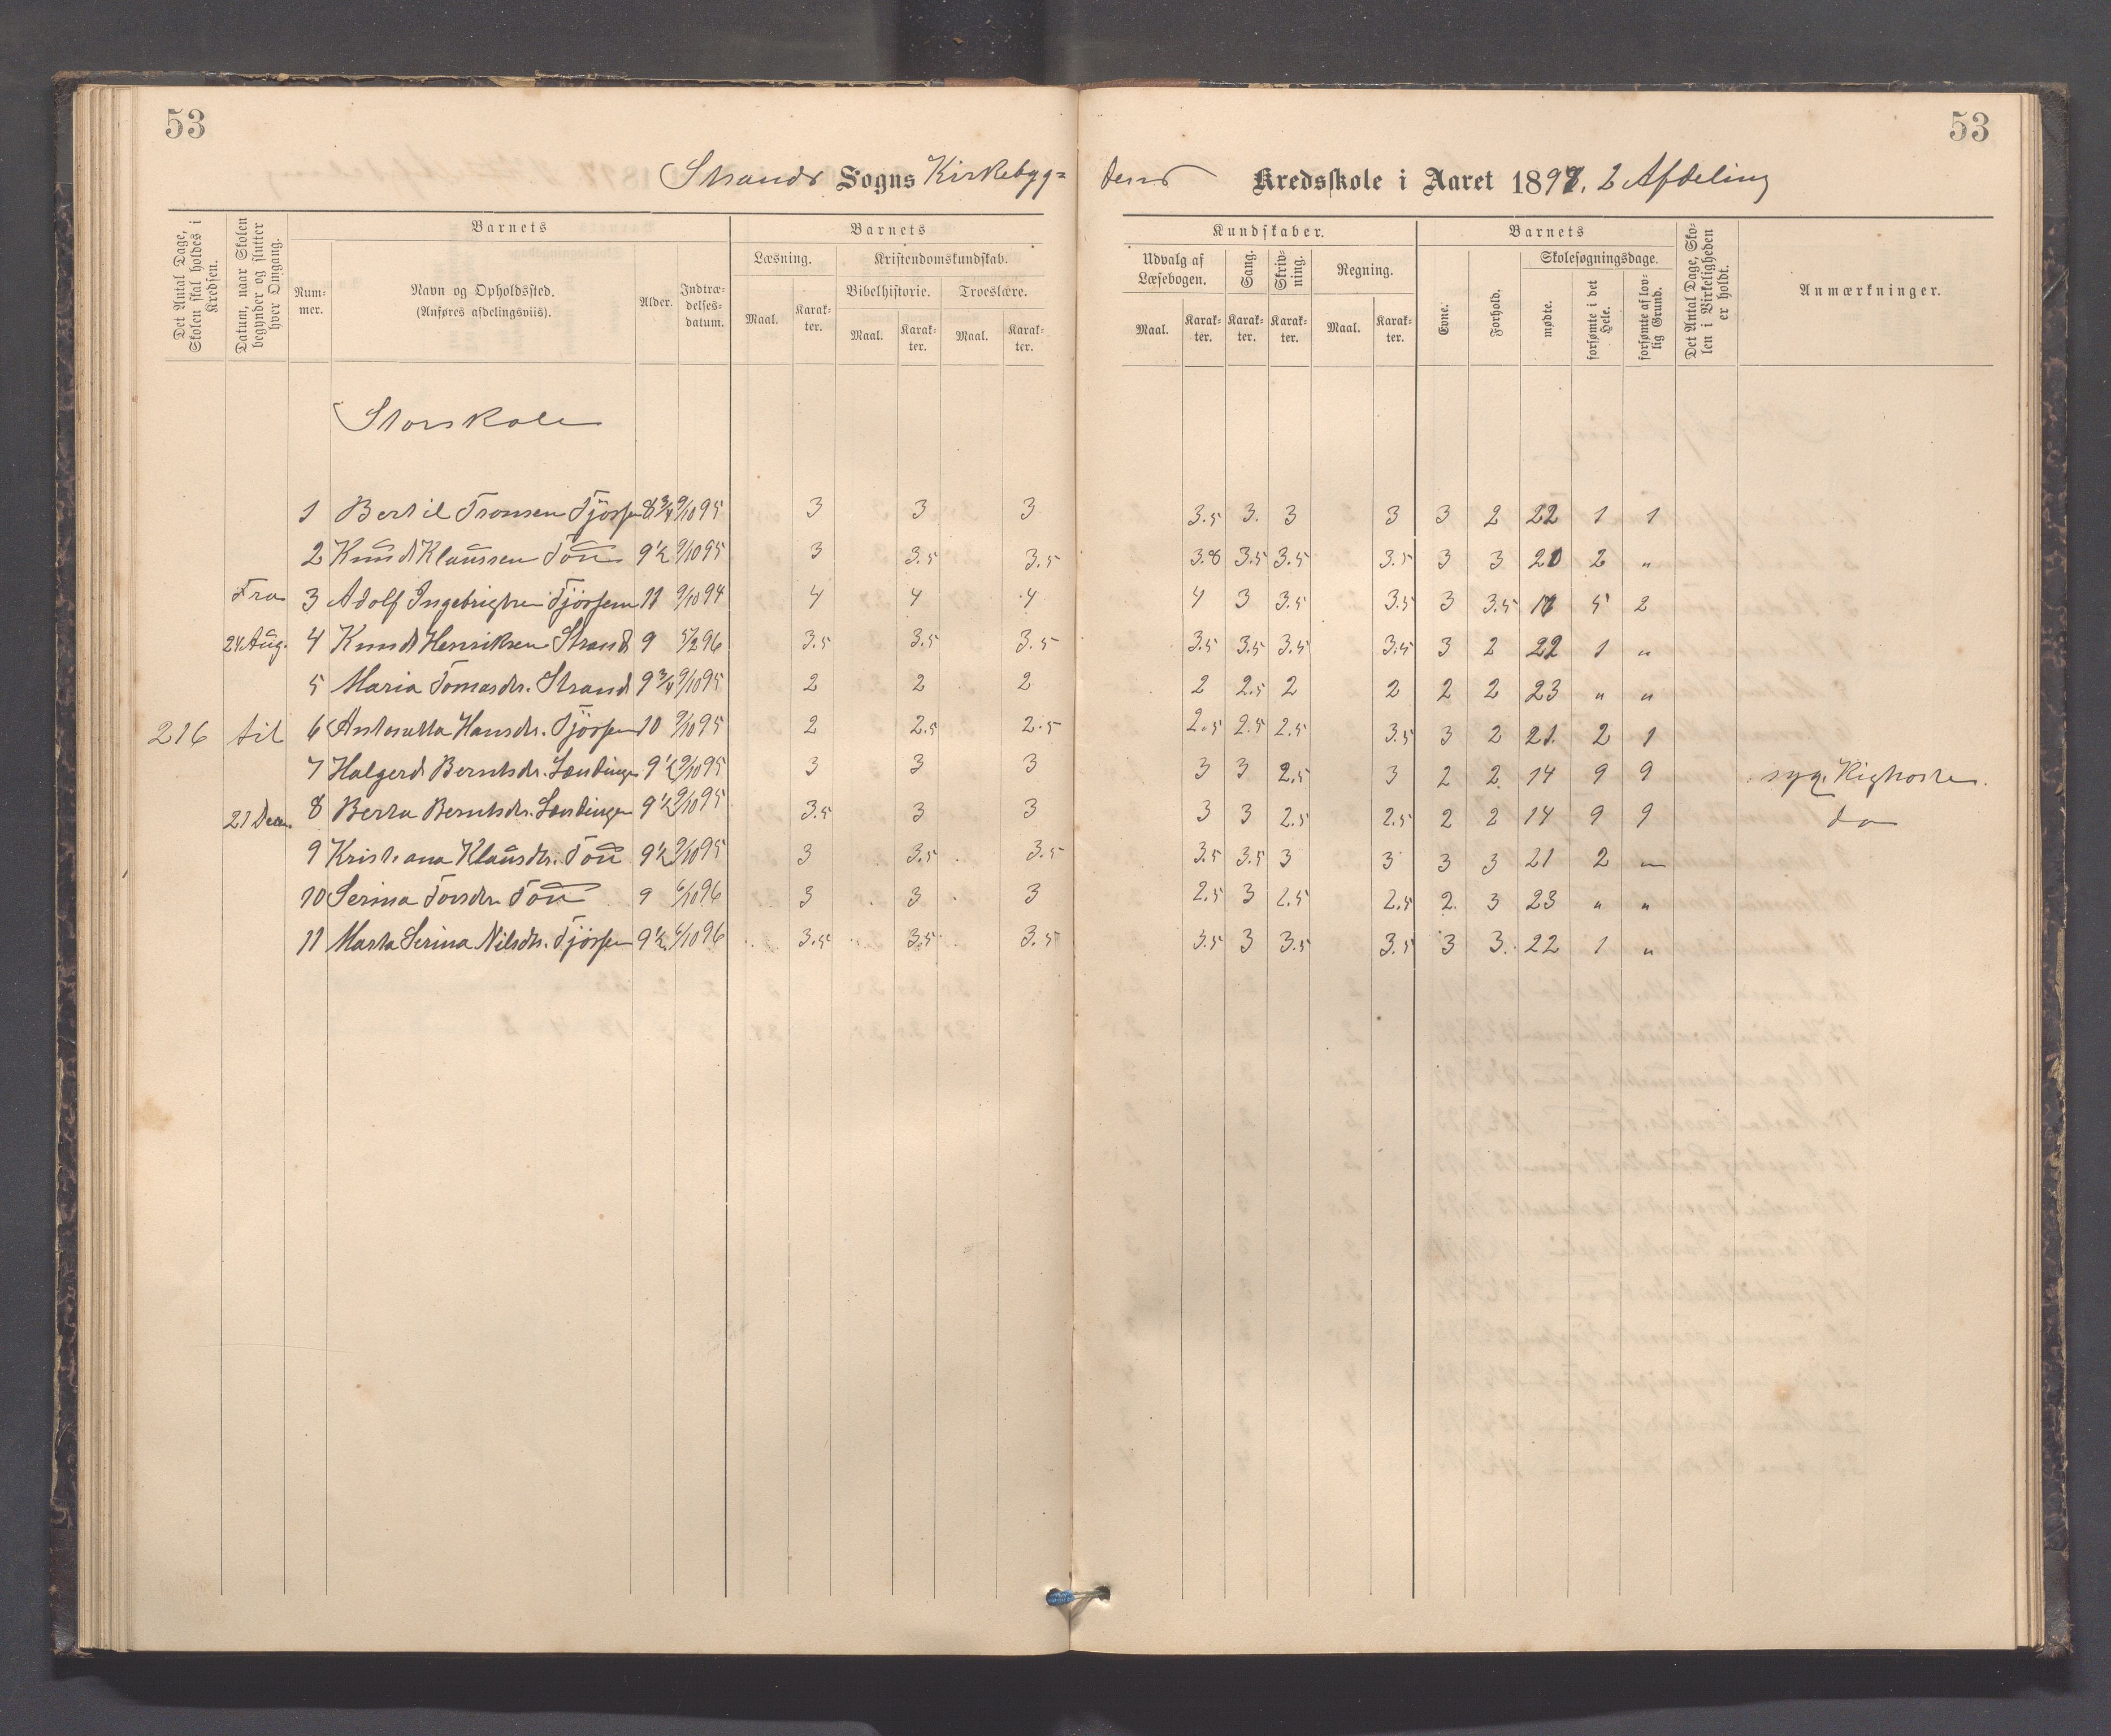 53
53
Strands Sogns Kirkebyg=
dens Kredsskole i Aaret 1897. 2 Afdeling
Det Antal Dage, Skolen skal holdes i Kredsen.
Datum, naar Skolen begynder og slutter hver Omgang.
Barnets
Num-
mer.
Navn og Opholdssted.
(Anføres afdelingsviis).
Alder.
Indtræ-
delses-
datum.
Barnets
Læsning.
Maal.
Karak-
ter.
Kristendomskundskab.
Bibelhistorie.
Troeslære.
Maal.
Karak-
ter.
Maal.
Karak-
ter.
Kundskaber.
Udvalg af
Læsebogen.
Sang.
Skriv-
ning.
Regning.
Maal.
Karak-
ter.
Karak-
ter.
Karak-
ter.
Maal.
Karak-
ter.
Barnets
Evne.
Forhold.
Skolesøgningsdage.
mødte.
forsømte i det Hele.
forsømte af lov-
lig Grund.
Det Antal Dage, Sko-
len i Virkeligheden
er holdt.
Anmærkninger.
Storskole
1 Bertil Tronsen Tjössem 8¾ 9/10 95 3 3 3 3.5 3. 3 3 3 2 22 1 1
2 Knud Klaussen Tou 9½ 9/10 95 3 3.5 3.5 3.8 3.5 3.5 3.5 3 3 20 2 "
Fra 3 Adolf Ingebrigtsen Tjössem 11 9/10 94 4 4 4 4 3 3.5 3.5 3 3.5 5 2
24 Aug. 4 Knud Henriksen Strand 9 5/2 96 3.5 3.5 3.5 3.5 3.5 3.5 3.5 3 2 22 1 "
5 Maria Tomasdtr. Strand 9¾ 9/10 95 2 2 2 2 2.5 2 2 2 2 23 " "
216 til 6 Hansdtr. Tjössem 10 9/10 95 2 2.5 2.5 2.5 2.5 2.5 3.5 3 2 21. 2 1
7 Halgerd Berntsdtr. 9½ 9/10 95 3 3 3 3 3 2.5 3 2 2 14 9 9 syg. Kighoste.
21 Decem 8 Berta Berntsdtr. 9½ 9/10 95 3.5 3 3 3 3 2.5 2.5 2 2 14 9 9 do
9 Kristiana Klausdtr. Tou 9½ 9/10 95 3 3.5 3.5 3.5 3.5 3 3 3 3 21 2 "
10 Serina Torsdtr. Tou 9 6/10 96 3 3 3 2.5 3 2.5 2.5 2. 3 23 " "
11 Marta Serina Nilsdtr. Tjössem 9½ 6/10 96 3.5 3.5 3.5 3.5 3 3.5 3.5 3 3. 22 1 "